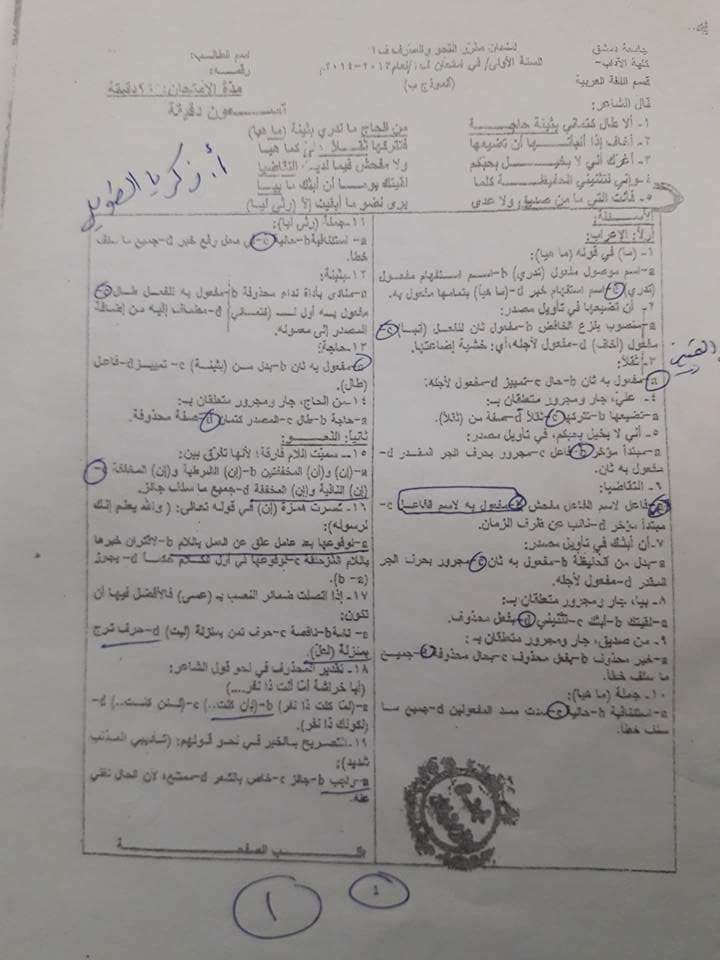 جامعة دمشق
كلية الآداب-
قسم اللغة العربية
امتحان مقرر النحو والصرف ف١
للسنة الأولى/ في امتحان ف١/لعام٢٠١٣-٢٠١٤م
(النموذج ب)
اسم الطالب:
رقمه:
مدة الامتحان: دقيقة
تسعون دقيقة
أ. زكريا الطويل
قال الشاعر:
١- ألا طال كتماني بثينة حاجة من الحاج ما تدري بثينة (ما هيا)
٢- أخاف إذا أنبأتها أن تضيعها فتتركها ثقلاً علي كما هيا
٣- أغرك أني لا يخيل بحبكم ولا مفحش فيما لديه التقاضيا
٤- وإني تثنيني الحفيظة كلما لقيتك يوماً أن أبثك ما بيا
٥- فأنت التي ما من صديق ولا عدى يرى نضو ما أبقيت إلا (رثى ليا)
الأسئلة:
أولاً: الإعراب:
١- (ما) في قوله (ما هيا):
a-اسم موصول مفعول (تدري) b-اسم استفهام مفعول
(تدري) c-اسم استفهام خبر d-(ما هيا) بتمامها مفعول به.
٢- أن تضيعها في تأويل مصدر:
a-منصوب بنزع الخافض b-مفعول ثان للفعل (أنبأ) c-
مفعول (أخاف) d-مفعول لأجله، أي: خشية إضاعتها.
٣- ثقلاً:
a-مفعول به ثان b-حال c-تمييز d-مفعول لأجله.
٤- علي، جار ومجرور متعلقان بـ:
a-تضيعها b-تتركها c-ثقلاً d-صفة من (ثقلاً).
٥- أني لا يخيل بحبكم، في تأويل مصدر:
a-مبتدأ مؤخر b-فاعل c-مجرور بحرف الجر المقدر d-
مفعول به ثان.
٦- التقاضيا:
a-فاعل لاسم الفاعل مفحش b-مفعول به لاسم الفاعل c-
مبتدأ مؤخر d-نائب عن ظرف الزمان.
٧- أن أبثك في تأويل مصدر:
a-بدل من الحفيظة b-مفعول به ثان c-مجرور بحرف الجر
المقدر d-مفعول لأجله.
٨- بيا، جار ومجرور متعلقان بـ:
a-لقيتك b-أبثك c-تثنيني d-بفعل محذوف.
٩- من صديق، جار ومجرور متعلقان بـ:
a-خبر محذوف b-بفعل محذوف c-بحال محذوفة d-جميع
ما سلف خطأ.
١٠- جملة (ما هيا):
a-استئنافية b-حالية c-سدت مسد المفعولين d-جميع ما
سلف خطأ.
١١- جملة (رثى ليا):
a-استئنافية b-حالية c-في محل رفع خبر d-جميع ما سلف
خطأ.
١٢- بثينة:
a-منادى بأداة نداء محذوفة b-مفعول به للفعل طال c-
مفعول به أول لـ (كتماني) d-مضاف إليه من إضافة
المصدر إلى معموله.
١٣- حاجة:
a-مفعول به ثان b-بدل من (بثينة) c-تمييز d-فاعل
(طال).
١٤- من الحاج، جار ومجرور متعلقان بـ:
a-حاجة b-طال c-المصدر كتمان d-صفة محذوفة.
ثانياً: النحو:
١٥- سميت اللام فارقة؛ لأنها تفرق بين:
a-(إن) و(أن) المخففتين b-(إن) الشرطية و(إن) المخففة c-
(إن) النافية و(إن) المخففة d-جميع ما سلف جائز.
١٦- كسرت همزة (إن) في قوله تعالى: (والله يعلم إنك
لرسوله):
a-لوقوعها بعد عامل علق عن العمل باللام b-لاقتران خبرها
باللام المزحلقة c-لوقوعها في أول الكلام d-يجوز
(a-b).
١٧- إذا اتصلت ضمائر النصب بـ (عسى) فالأفضل فيها أن
تكون:
a-تامة b-ناقصة c-حرف تمن بمنزلة (ليت) d-حرف ترج
بمنزلة (لعل).
١٨- تقدير المحذوف في نحو قول الشاعر:
(أبا خراشة أما أنت ذا نفر....)
a-(لما كنت ذا نفر) b-(بأن كنت..) c-(لئن كنت..) d-
(لكونك ذا نفر).
١٩- التصريح بالخبر في نحو قولهم: (تأديبي المذنب
شديد):
a-واجب b-جائز c-خاص بالشعر d-ممتنع، لأن الحال تغني
عنه.
الصفحة
١